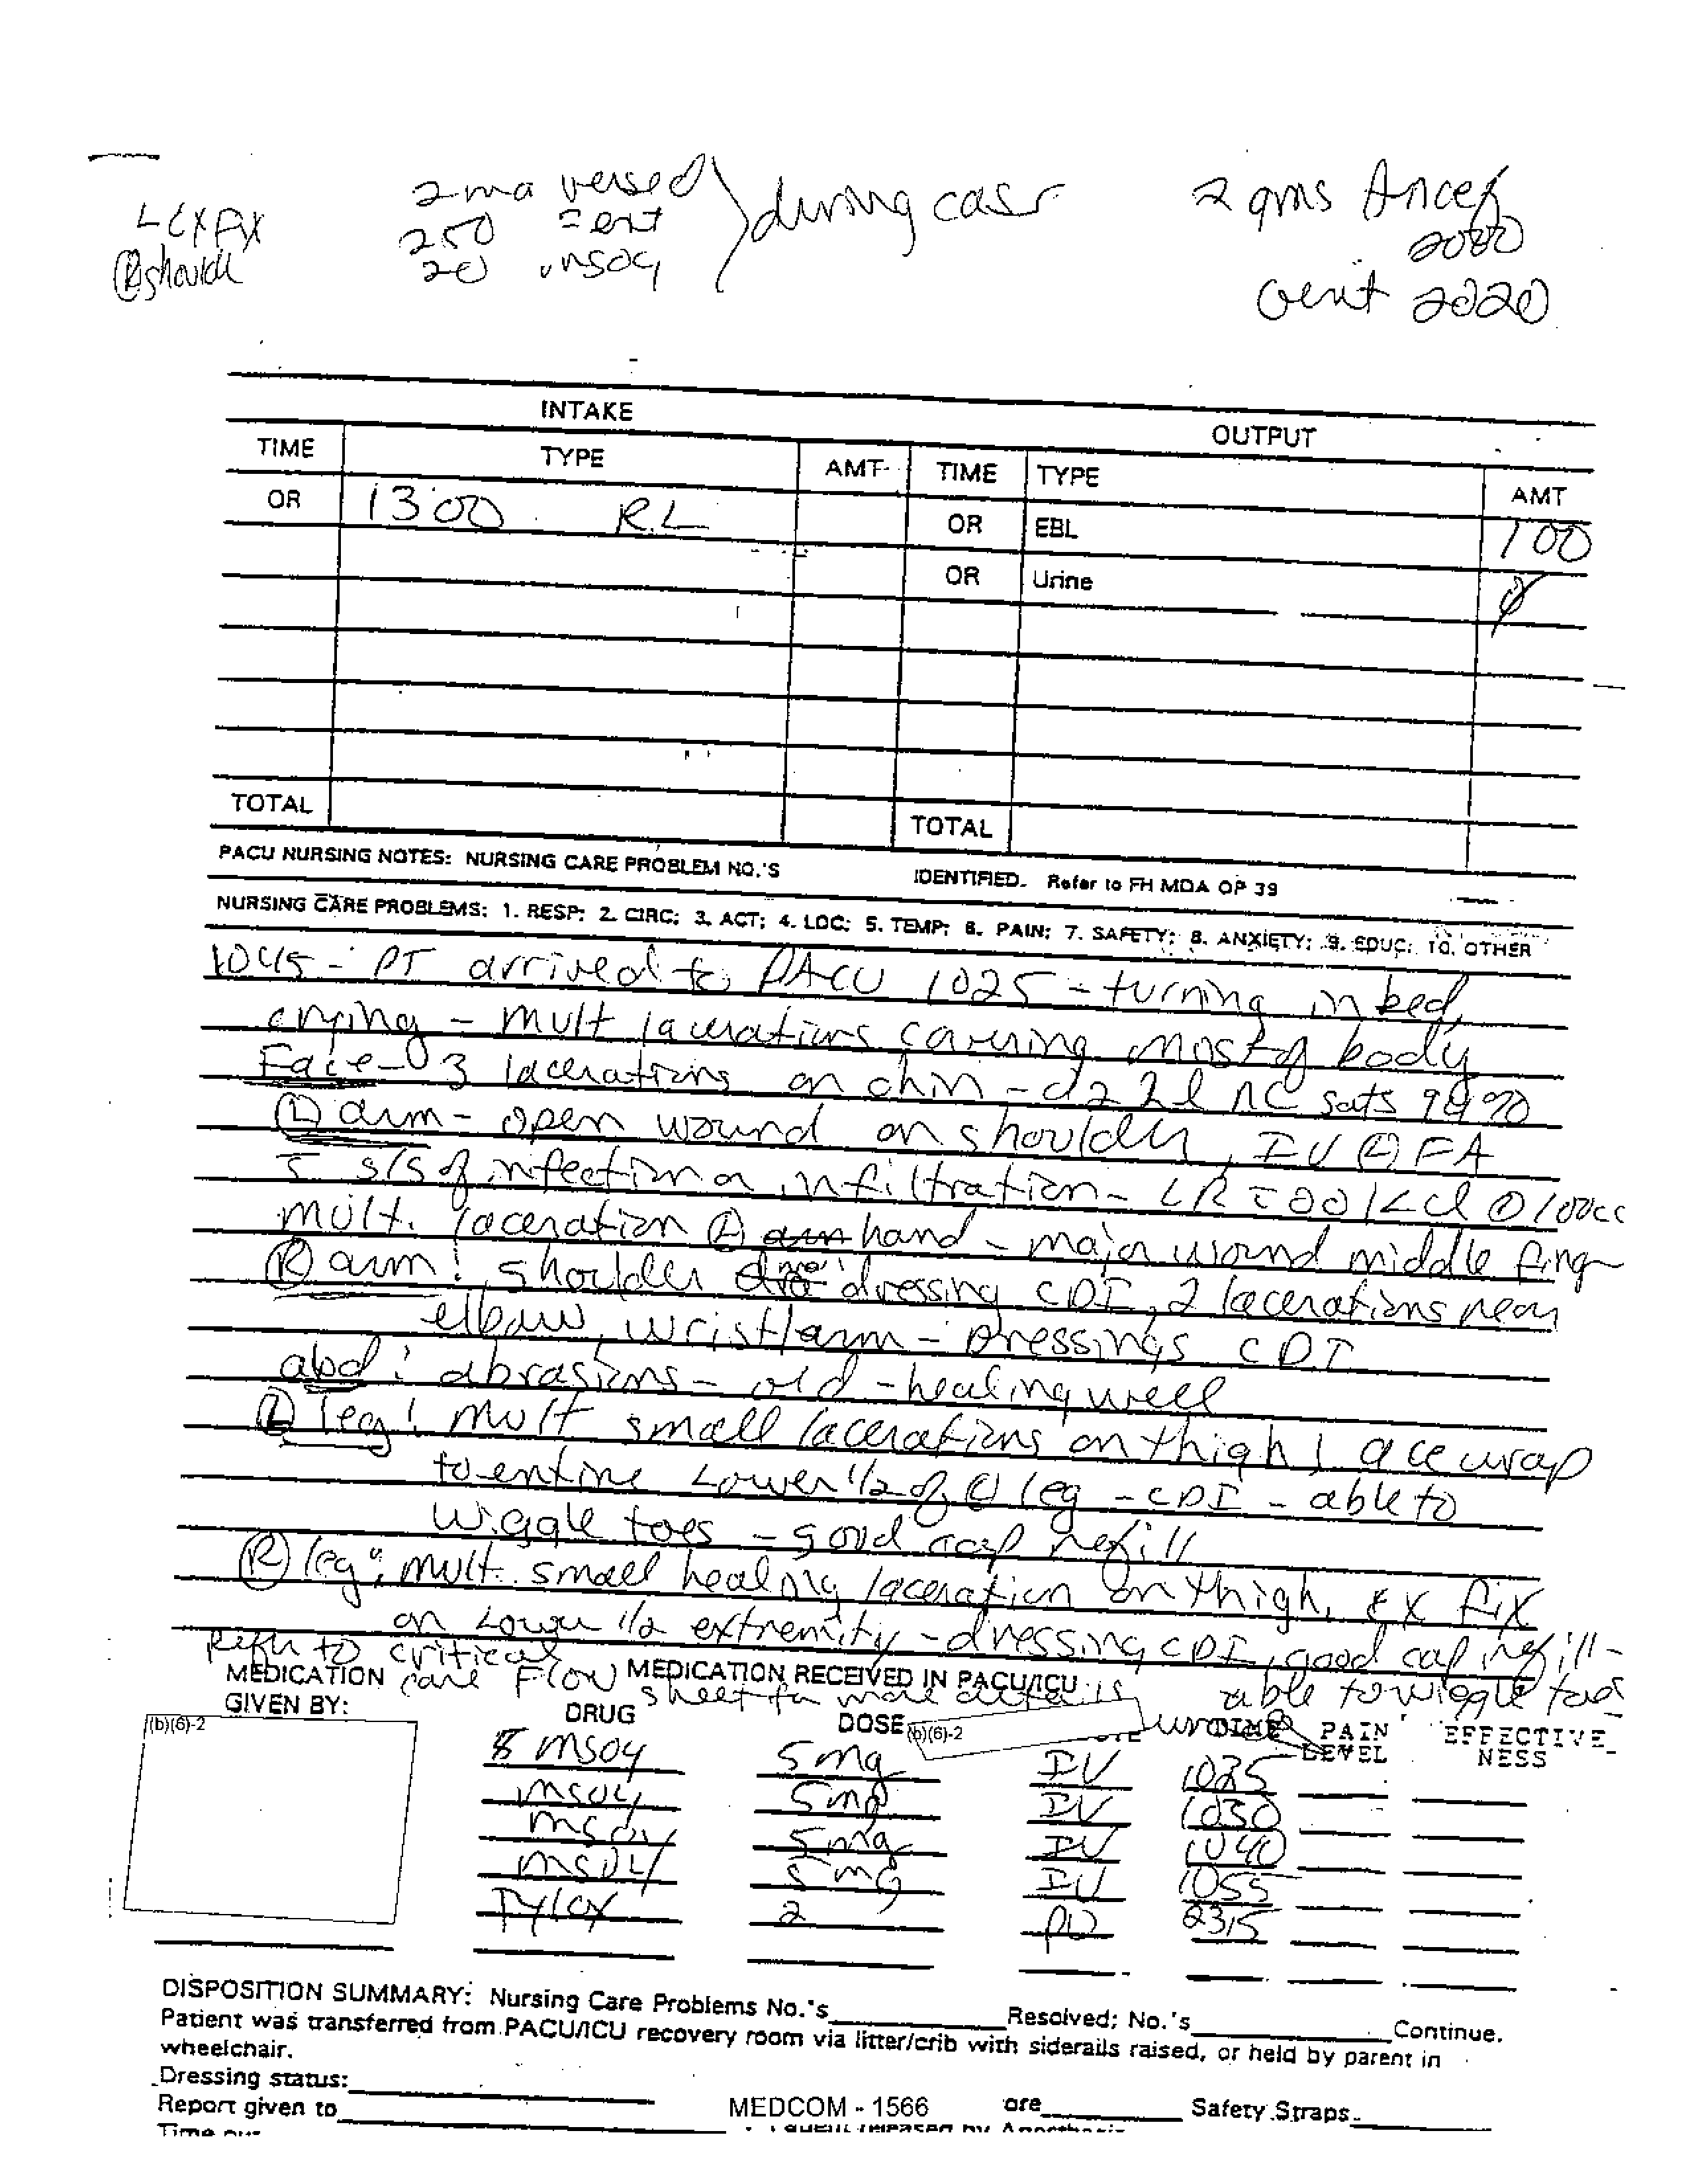 2 mg versed
250 fent
20 MSO4
during case
2 gms Ancef
2000
Gent 2020
L Ex Fix
Ⓡ should
INTAKE OUTPUT
TIME TYPE AMT TIME TYPE AMT
OR 1300 RL OR EBL 100
OR Urine Ø
TOTAL TOTAL
PACU NURSING NOTES: NURSING CARE PROBLEM NO.'S IDENTIFIED. Refer to FH MDA OP 39
NURSING CARE PROBLEMS: 1. RESP; 2. CIRC; 3. ACT; 4. LOC; 5. TEMP; 6. PAIN; 7. SAFETY; 8. ANXIETY; 9. EDUC; 10. OTHER
1045 - PT arrived to PACU 1025 - turning in bed,
crying - mult lacerations covering most of body
Face - 3 lacerations on chin - 2 l NC sats 98%
Ⓛ arm - open wound on shoulder, IV Ⓛ FA
s/s of infection or infiltration - LR KCl @ 100cc
mult. laceration Ⓛ arm hand - major wound middle fing
Ⓡ arm: shoulder dressing CDI, 2 lacerations near
elbow, wrist/arm - Dressings CDI
abd: abrasions - old - healing well
Ⓛ leg: mult small lacerations on thigh, ace wrap
to entire Lower 1/2 of Ⓛ leg - CDI - able to
wiggle toes - good cap refill
Ⓡ leg: mult. small healing laceration on thigh, ex fix
on Lower 1/2 extremity - dressing CDI, good cap refill -
able to wiggle toes
Refer to critical care Flow sheet for more details
MEDICATION MEDICATION RECEIVED IN PACU/ICU
GIVEN BY: DRUG DOSE TIME PAIN LEVEL EFFECTIVE-NESS
(b)(6)-2
(b)(6)-2
MSO4 5mg IV 1025
MSO4 5mg IV 1030
MSO4 5mg IV 1040
MSO4 5mg IV 1055
Tylox 2 PO 2315
DISPOSITION SUMMARY: Nursing Care Problems No.'s Resolved; No.'s Continue.
Patient was transferred from PACU/ICU recovery room via litter/crib with siderails raised, or held by parent in
wheelchair.
Dressing status:
Report given to MEDCOM - 1566 ore Safety Straps